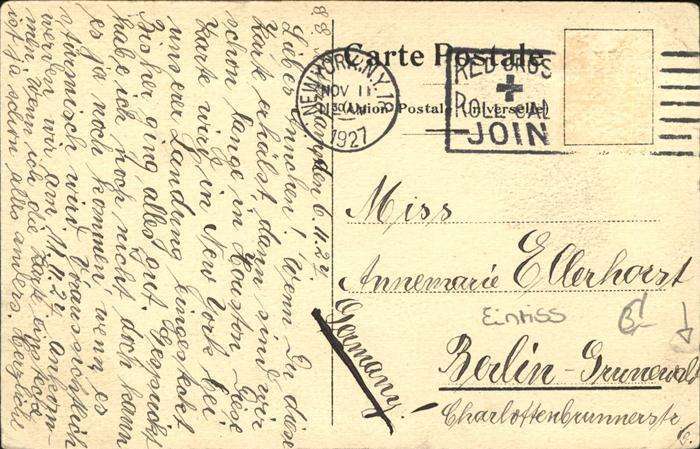 den 6.11.27.
Liebes Ännchen! Wenn Du diese
Karte erhälst, dann sind wir
schon lange in Houston. Diese
Karte wird in New York bei
unserer Landung eingesteckt.
Bisher ging alles gut. Gespuckt
habe ich noch nicht, doch kann
es ja noch kommen, wenn es
stürmisch wird. Voraussichtlich
werden wir am 11.11.27 ankom-
men. Wenn ich die Karte
ist ja schon alles anders.
Carte Postale
(Union Postale Universelle)
NEW YORK, N.Y.
NOV 11
1927
RED CROSS
ROLL CALL
JOIN
Miss
Annemarie Ellerhorst
Einmss
Berlin-Grunewald
Charlottenbrunnerstr
6.
Germany